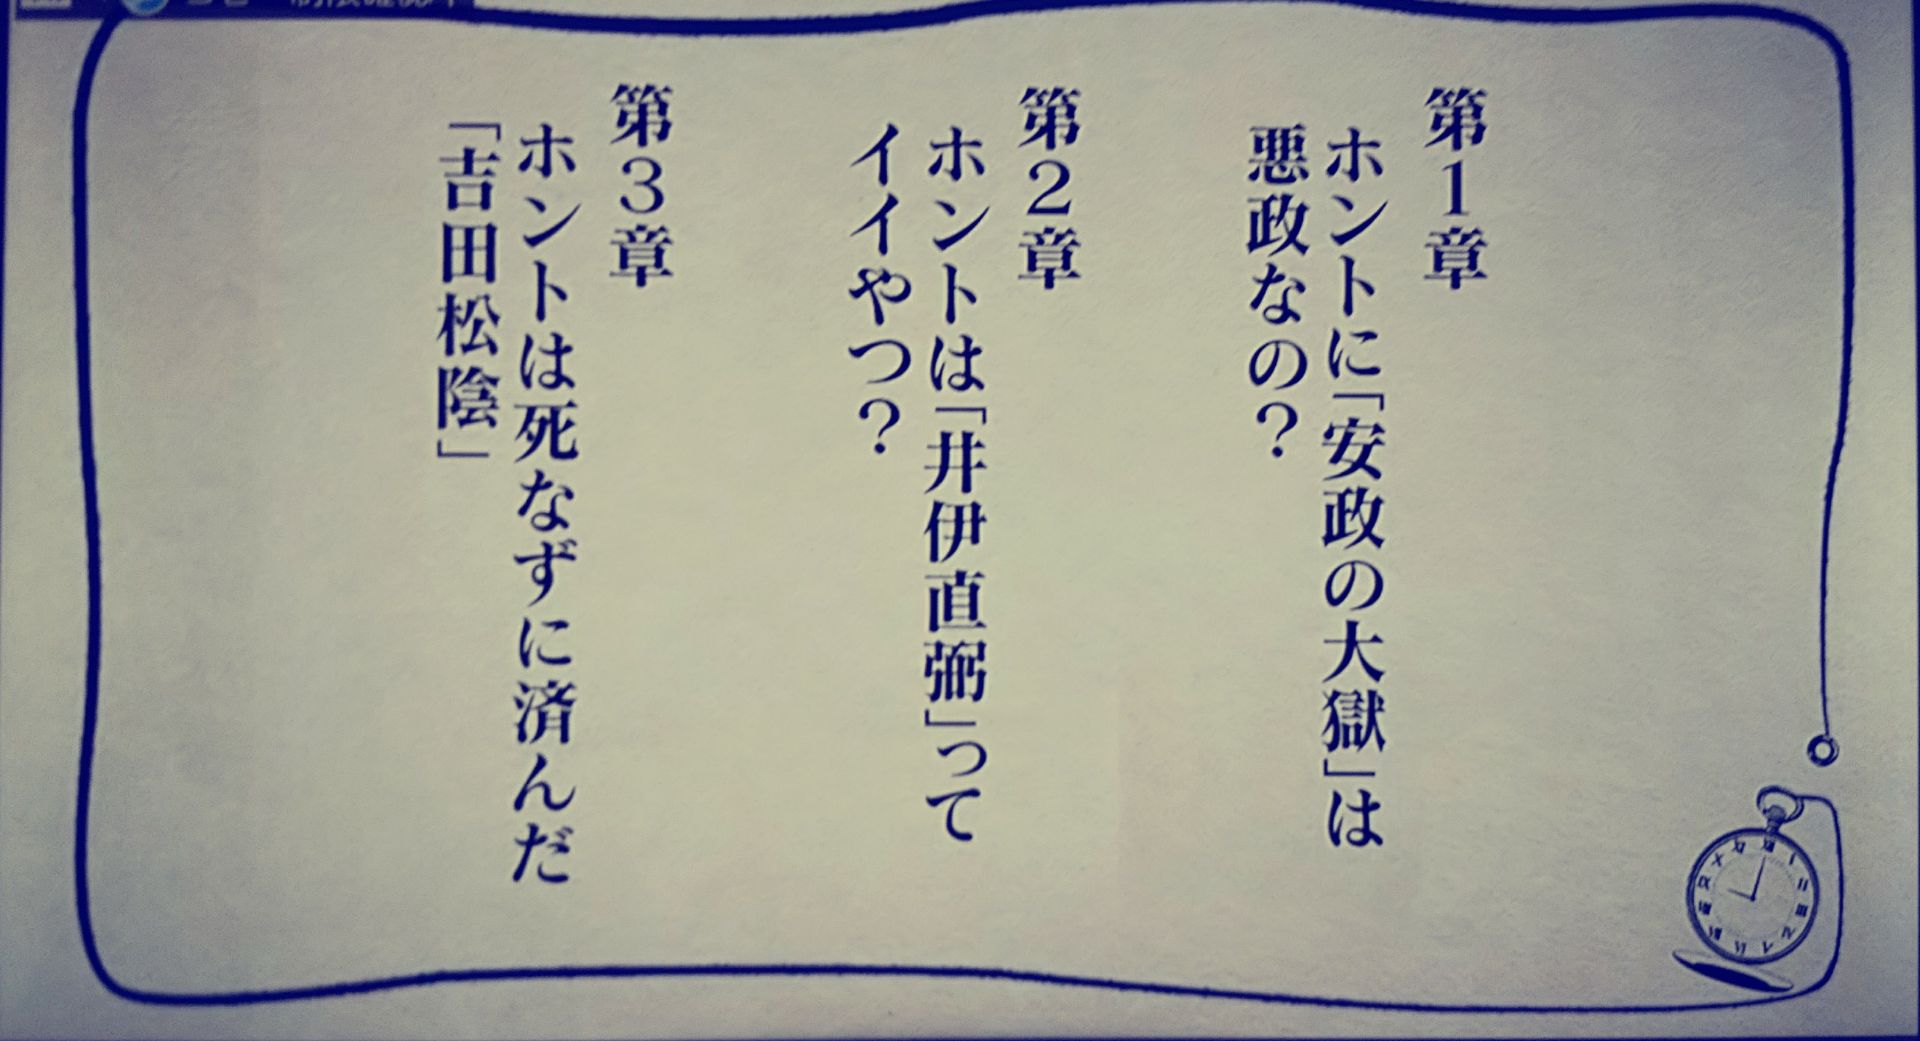 第1章
ホントに「安政の大獄」は
悪政なの？
第2章
ホントは「井伊直弼」って
イイやつ？
第3章
ホントは死なずに済んだ
「吉田松陰」